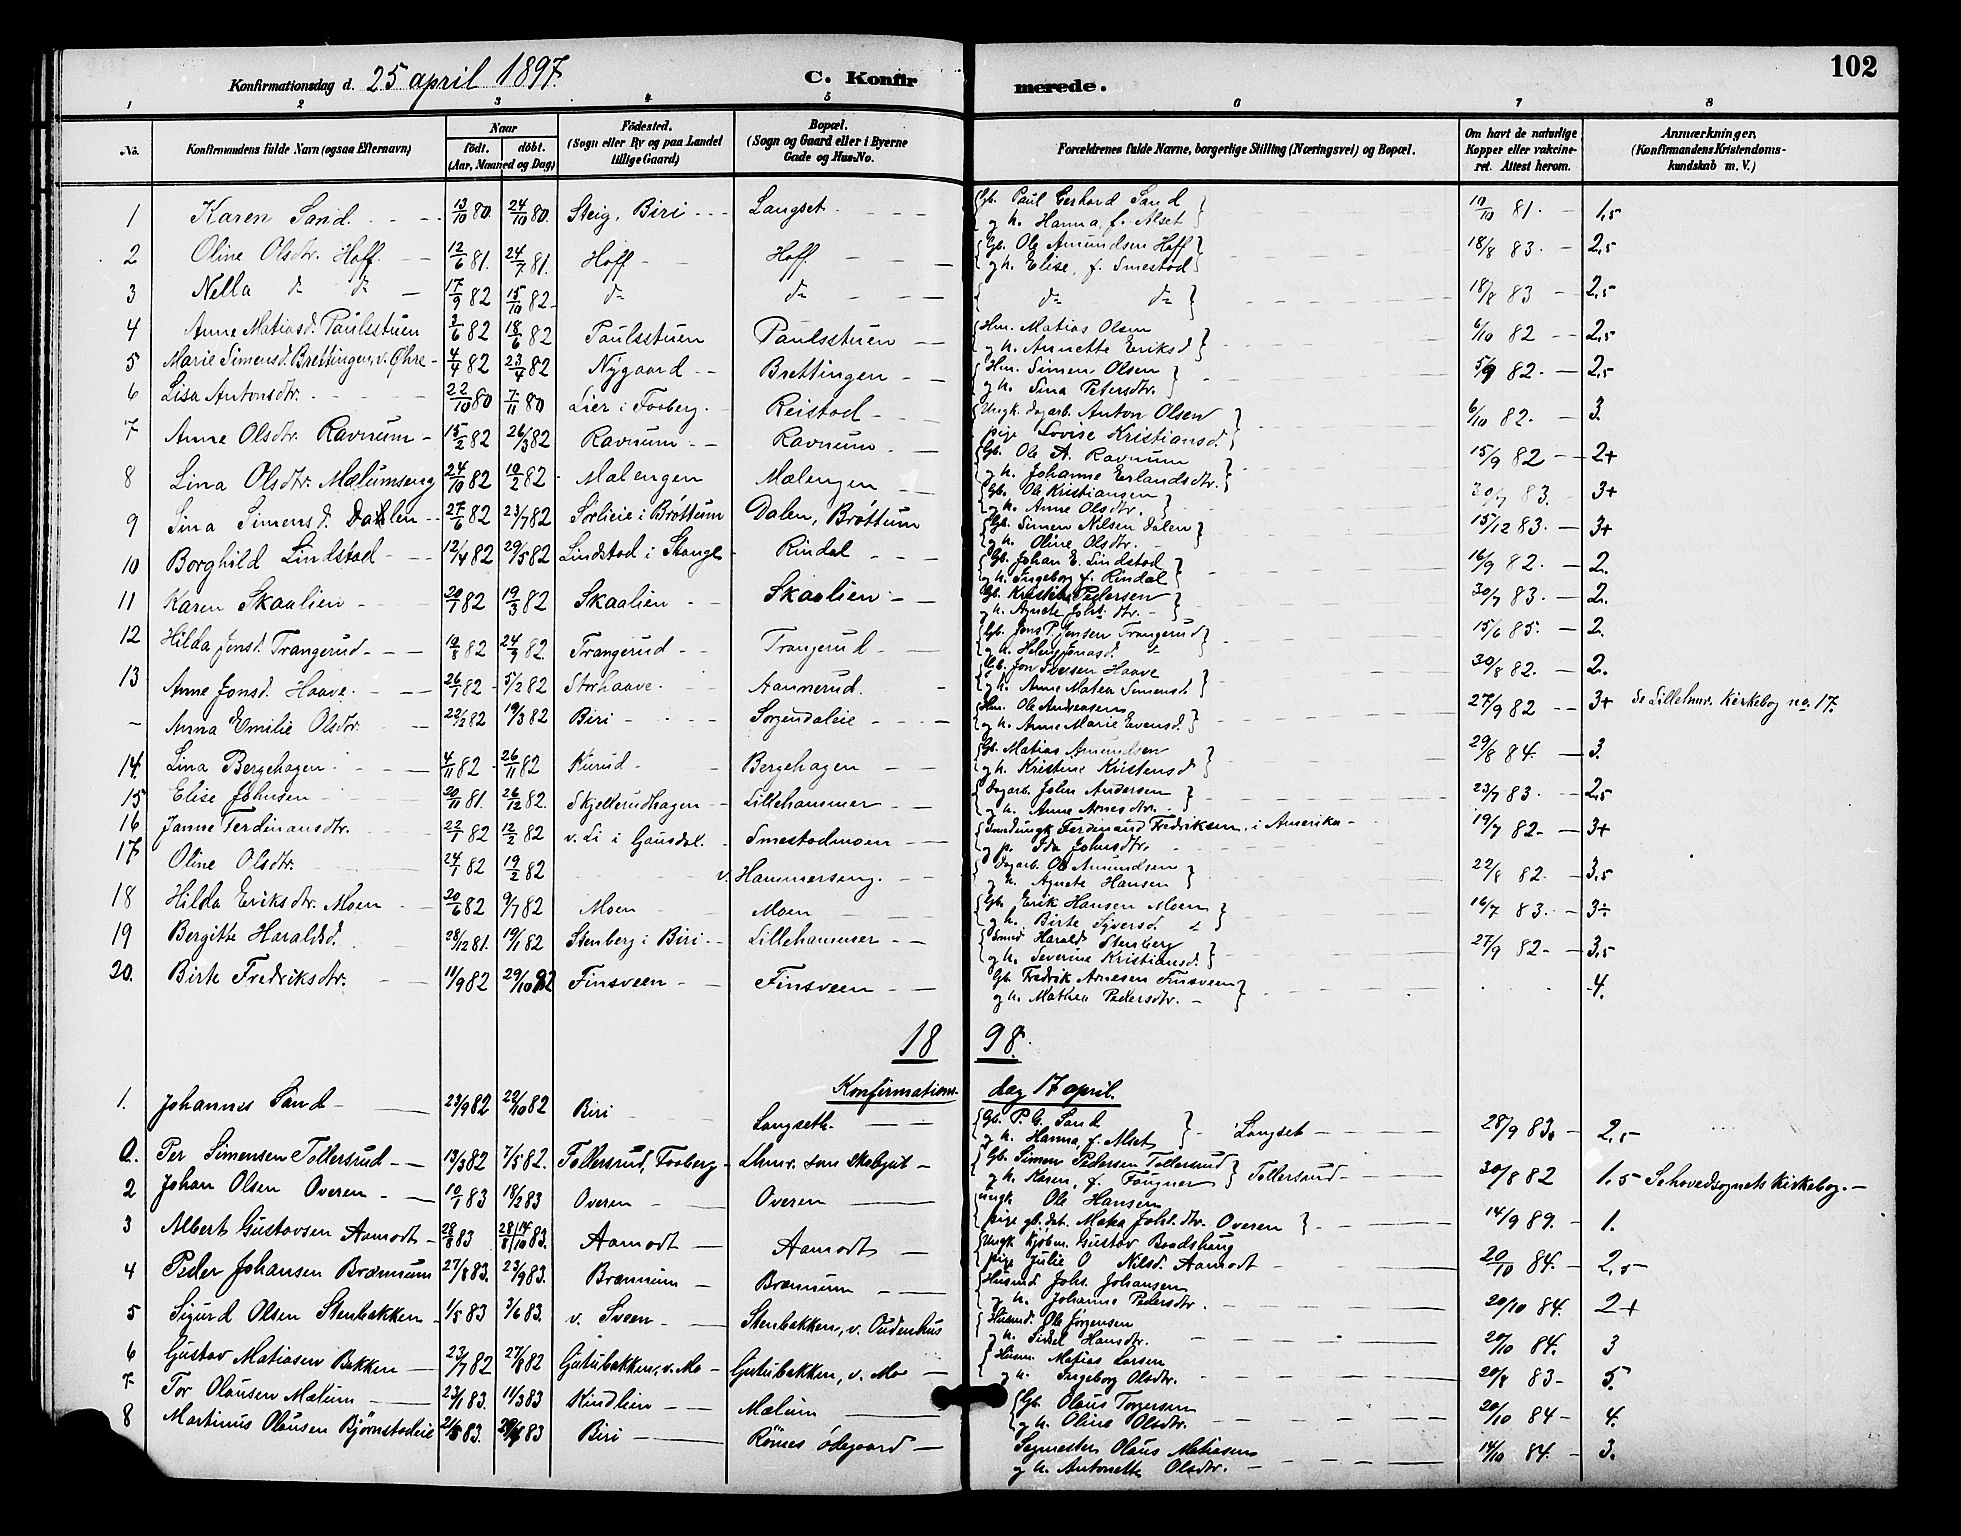 102
Konfirmationsdag d. 25 april 1897. C. Konfirmerede.
1 2 3 4 5 6 7 8
No. Konfirmandens fulde Navn (ogsaa Efternavn) Naar födt. döbt. (Aar, Maaned og Dag) Födested. (Sogn eller By og paa Landet tillige Gaard) Bopæl. (Sogn og Gaard eller i Byerne Gade og Hus-No. Forældrenes fulde Navne, borgerlige Stilling (Næringsvei) og Bopæl. Om havt de naturlige Kopper eller vakcineret. Attest herom. Anmærkninger, (Konfirmandens Kristendomskundskab m. V.)
1 Karen Sand 13/10 80 24/10 80. Steig, Biri Langset Gb. Paul Gerhard Sand og h. Hanna, f. Alset 10/10 81. 1,5
2 Oline Olsdtr. Hoff. 12/6 81. 24/7 81. Hoff Hoff. Gb. Ole Amundsen Hoff og h. Elise, f. Smestad 18/8 83. 2,5
3 Nella do do 17/9 82 15/10 82 do do do do 18/8 83 2,5
4 Anne Matiasd. Paulsstuen 3/6 82 18/6 82 Paulsstuen Paulsstuen Hm. Matias Olsen og h. Annette Eriksd. 6/10 82 2,5
5 Marie Simensd. Brettingen, v. Øhre 4/4 82 23/4 82 Nygaard Brettingen Hm. Simen Olsen og h. Sina Petersdtr. 5/9 82. 2,5
6 Lisa Antonsdtr. 22/10 80 7/11 80 Lier i Faaberg. Reistad Ungk. dagarb. Anton Olsen pige Lovise Kristiansd. 6/10 82. 3.
7 Anne Olsdtr. Ravnum 15/2 82 26/3 82 Ravnum Ravnum Gb. Ole A. Ravnum og h. Johanne Erlandsdtr. 15/9 82 2+
8 Lina Olsdtr. Mælumseng 24/10 82 19/2 82 Malengen Mælengen Gb. Ole Kristiansen og h. Anne Olsdtr. 30/7 83. 3+
9 Sina Simensd. Dahlen 27/6 82 23/7 82 Sørlieie i Brøttum Dalen, Brøttum Gb. Simen Nilsen Dalen og h. Oline Olsdtr. 15/12 83. 3+
10 Borghild Lindstad 12/4 82 29/5 82 Lindstad i Stange Rindal Gb. Johan E. Lindstad og h. Ingeborg f. Rindal 16/9 82. 2.
11 Karen Skaalien 20/1 82 19/3 82 Skaalien Skaalien Gb. Kristian Pedersen og h. Agnete Johs. dtr. 30/7 83. 2.
12 Hilda Jensd. Trangerud 19/8 82 24/9 82. Trangerud Trangerud Gb. Jens P. Jensen Trangerud og h. Helene Jonasd. 15/6 85. 2.
13 Anne Jonsd. Haave. 26/1 82 5/2 82 Storhaave. Aannerud. Gb. Jon Iversen Haave og h. Anne Matea Simensd. 30/8 82. 2.
- Anna Emilie Olsdtr. 22/2 82 19/3 82 Biri Sorgendaleie Hm. Ole Andreassen og h. Anne Marie Evensd. 27/9 82 3+ Se Lillehmr. Kirkebog no. 17.
14. Lina Bergehagen 4/11 82 26/11 82 Kurud Bergehagen Gb. Matias Amundsen og h. Kristine Kristensd. 29/8 84. 3.
15 Elise Johnsen 20/11 81. 26/12 82. Skjellerudhagen Lillehammer Dagarb. John Andersen og h. Anne Arnesdtr. 23/7 83. 2,5
16 Janne Ferdinansdtr. 22/1 82 12/2 82 v. Li i Gausdal. Smestadmoen Smedungk Ferdinand Fredriksen i Amerika og p. Ida Johnsdtr. 19/7 82 3+
17 Oline Olsdtr. 24/1 82 19/2 82 v. Hammerseng. Dagarb. Ole Amundsen og h. Agnete Hansen 22/8 82. 3,5
18 Hilda Eriksdtr. Moen 20/6 82 9/7 82 Moen Moen Gb. Erik Hansen Moen og h. Birte Syversd. 16/7 83. 3÷
19 Bergitte Haraldsd. 28/12 81. 19/1 82 Stenberg i Biri Lillehammer Smed Harald Stenberg og h. Severine Kristiansd. 27/9 82 3,5
20. Birte Fredriksdtr. 11/9 82 29/10 82 Finsveen Finsveen Gb. Fredrik Arnesen Finsveen og h. Mathea Pedersdtr. 4.
1898.
Konfirmationsdag 17 april.
1. Johannes Sand 23/9 82 22/10 82 Biri Langseth. Gb. P. G. Sand og h. Hanna, f. Alset Langset 28/9 83. 2,5
0. Per Simensen Tollersrud 13/3 82 7/5 82. Tollersrud, Faaberg Lhmr. som Skogut Gb. Simen Pedersen Tollersrud og h. Karen, f. Fougner Tollersrud 30/8 82 1,5 Se hovedsognets Kirkebog.
2 Johan Olsen Overen 10/1 83 18/2 83 Overen Overen Ungk Ole Hansen pige gb. dat. Matea Johs. dtr. Overen 14/9 89. 1.
3 Albert Gustavsen Aamodt 28/8 83 14/10 83. Aamodt Aamodt Ungk Kjøbm. Gustav Baadshaug pige Julie O Nilsd. Aamodt 20/10 84. 2,5
4 Peder Johansen Brænnum 27/8 83. 23/9 83. Brænnum Brænnum Husmd Johs. Johansen og h. Johanne Pedersdtr. 20/10 84. 2+
5 Sigurd Olsen Stenbakken 1/5 83 3/6 83. v. Sveen Stenbakken, v. Oudenhus Husmd. Ole Jørgensen og h. Sidsel Hansdtr. 20/10 84. 3
6 Gustav Matiasen Bakken 23/7 82 27/8 82 Gutubakken, v. Mo Gutubakken, v. Mo Husm. Matias Larsen og h. Ingeborg Olsdtr. 20/8 83 5.
7 Tor Olausen Mælum 23/1 83. 11/3 83 Kindlien Mælum Gb. Olaus Torgersen og h. Oline Olsdtr. 20/10 84 4.
8 Martinus Olausen Bjørnstadeie 21/3 83. 83 Biri Rönes ødegaard Sagmester Olaus Matiasen og h. Antonette Olsdtr. 14/10 84. 3.